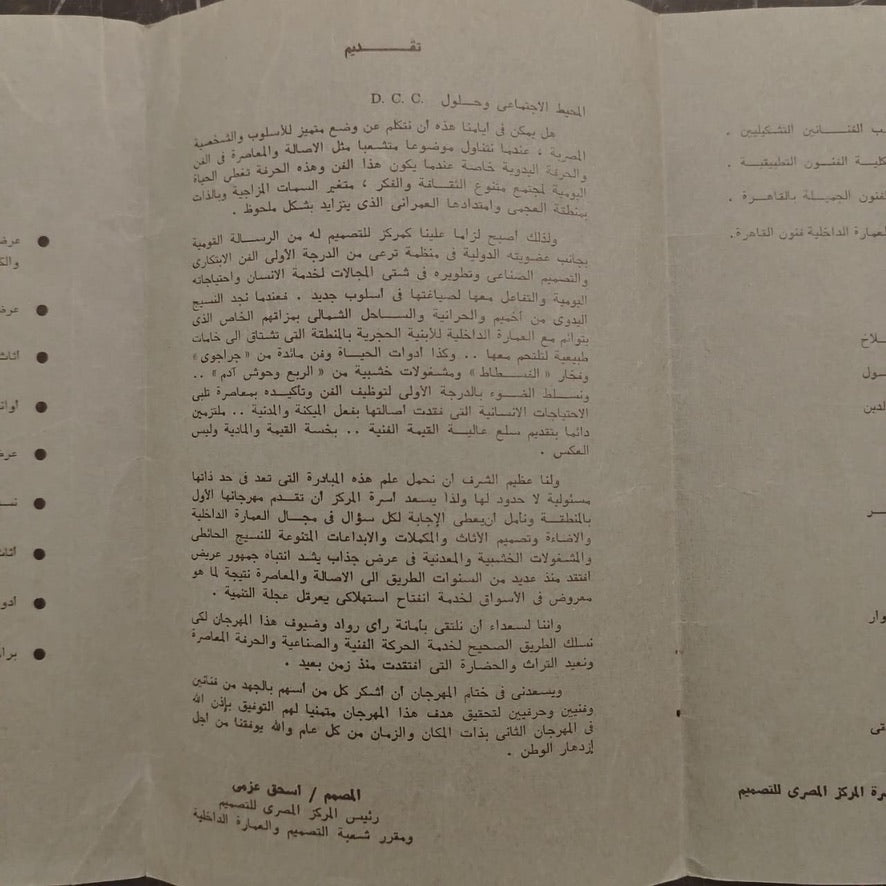 تقـــــديم
المحيط الاجتماعى وحـلول D. C. C.
هل يمكن فى أيامنا هذه أن نتكلم عن وضع متميز للأسلوب والشخصية
المصرية ، عندما نتناول موضوعا متشعبا مثل الاصالة والمعاصرة فى الفن
والحرفة اليدوية خاصة عندما يكون هذا الفن وهذه الحرفة تغطى الحياة
اليومية لمجتمع متنوع الثقـافة والفكر ، متغير السمات المزاجية وبالذات
بمنطقة العجمى وامتدادها العمرانى الذى يتزايد بشكل ملحوظ .
ولذلك أصبح لزاما علينا كمركز للتصميم له من الرسـالة القومية
بجانب عضويته الدولية فى منظمة ترعى من الدرجة الأولى الفن الابتكارى
والتصميم الصناعى وتطويره فى شتى المجالات لخدمة الانسان واحتياجاته
اليومية والتفاعل معها لصياغتها فى أسلوب جديد . فعندما نجد النسيج
اليدوى من أخميم والحرانية والسـاحل الشمالى بمزاقهم الخاص الذى
يتوائم مع العمارة الداخلية للأبنية الحجرية بالمنطقة التى تشتاق الى خامات
طبيعية لتلتحم معها .. وكذا أدوات الحيـاة وفن مائدة من «جراجوى»
وفخار «الفسـطاط» ومشغولات خشبية من «الربع وحوش آدم» ..
ونسـلط الضـوء بالدرجة الأولى لتوظيف الفن وتأكيـده بمعاصرة تلبى
الاحتياجات الانسانية التى فقدت اصالتها بفعل الميكنة والمدنية .. ملتزمين
دائما بتقديم سلع عاليـة القيمة الفنية .. بخسة القيمة والمادية وليس
العكس .
ولنا عظيم الشرف أن نحمل علم هذه المبادرة التى تعد فى حد ذاتها
مسئولية لا حدود لها ولذا يسعد أسرة المركز أن تقدم مهرجانها الأول
بالمنطقـة ونأمل أن يعطى الإجابة لكل سؤال فى مجـال العمارة الداخلية
والاضاءة وتصميم الأثاث والمكملات والابداعات المتنوعة للنسيج الحائطى
والمشغولات الخشبية والمعدنية فى عرض جذاب يشد انتباه جمهور عريض
افتقد منذ عديد من السنوات الطريق الى الاصالة والمعاصرة نتيجة لما هو
معروض فى الأسواق لخدمة انفتاح استهلاكى يعرقل عجلة التنمية .
واننا لسعداء أن نلتقى بأمانة رأى رواد وضيوف هذا المهرجان لكى
نسلك الطريق الصحيح لخدمة الحركة الفنية والصناعية والحرفة المعاصرة
ونعيد التراث والحضارة التى افتقدت منذ زمن بعيد .
ويسعدنى فى ختام المهرجان أن أشكر كل من أسهم بالجهد من فنانين
وفنيين وحرفيين لتحقيق هدف هذا المهرجان متمنيا لهم التوفيق بإذن الله
فى المهرجان الثانى بذات المكان والزمان من كل عام والله يوفقنا من أجل
إزدهار الوطن .
المصمم / اسحق عزمى
رئيس المركز المصرى للتصميم
ومقرر شعبة التصميم والعمارة الداخلية
الفنـانين التشكيليين .
كلية الفنـون التطبيقية .
الفنون الجميلة بالقاهـرة .
العمارة الداخلية فنون القاهرة .
المركز المصرى للتصميم